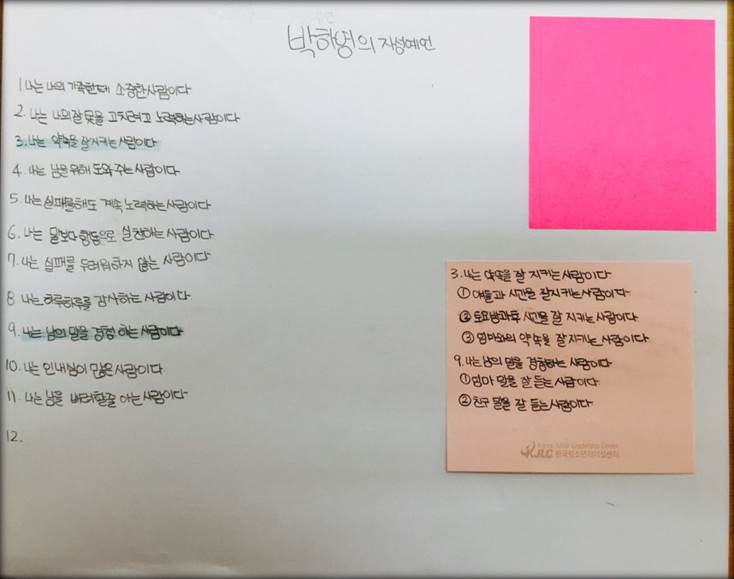 박하영의 자성예언
1. 나는 나의 가족한테 소중한 사람이다
2. 나는 나의 잘못을 고치려고 노력하는 사람이다
3. 나는 약속을 잘 지키는 사람이다
4. 나는 남을 위해 도와 주는 사람이다
5. 나는 실패를 해도 계속 노력하는 사람이다
6. 나는 말보다 행동으로 실천하는 사람이다
7. 나는 실패를 두려워하지 않는 사람이다
8. 나는 하루하루를 감사하는 사람이다
9. 나는 남의 말을 경청하는 사람이다
10. 나는 인내심이 많은 사람이다
11. 나는 남을 배려할줄 아는 사람이다
12.
3. 나는 약속을 잘 지키는 사람이다
① 애들과 시간을 잘지키는 사람이다
② 토요방과후 시간을 잘 지키는 사람이다
③ 엄마와의 약속을 잘 지키는 사람이다
9. 나는 남의 말을 경청하는 사람이다
① 엄마 말을 잘 듣는 사람이다
② 친구 말을 잘 듣는 사람이다
Korea Junior Leadership Center
KJLC 한국청소년리더십센터